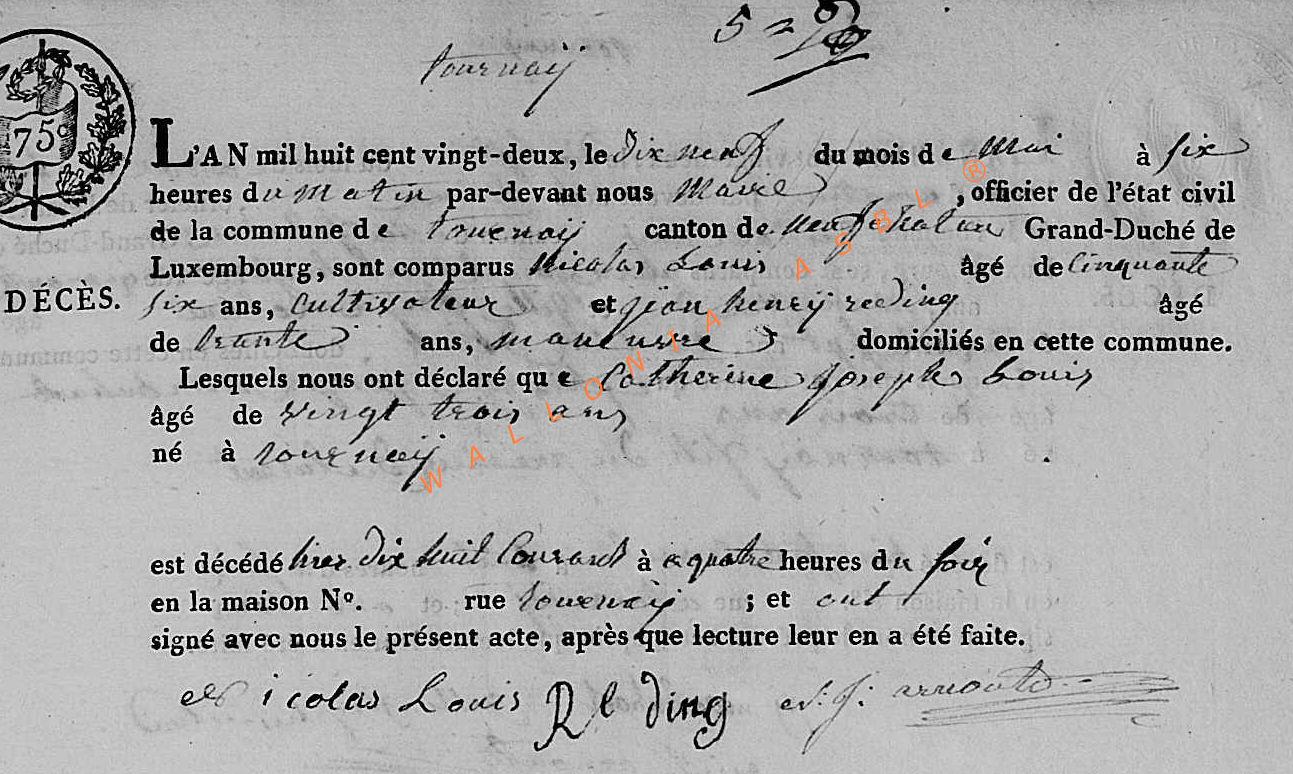 5 =
tournaÿ
75c
L'AN mil huit cent vingt-deux, le dix neuf du mois de Mai à six
heures du matin par-devant nous Maire, officier de l'état civil
de la commune de tournaÿ canton de Neufchateau Grand-Duché de
Luxembourg, sont comparus Nicolas Louis âgé de cinquante
DÉCÈS.
six ans, cultivateur et jean henrÿ reeding âgé
de trante ans, maneuvre domiciliés en cette commune.
Lesquels nous ont déclaré que Catherine joseph Louis
âgé de vingt trois ans
né à tournaÿ.
est décédé hier dix huit Courant à a quatre heures du soir
en la maison Nº. rue tournaÿ ; et ont
signé avec nous le présent acte, après que lecture leur en a été faite.
Nicolas Louis Reding N. J. arnould
WALLONIA ASBL ®